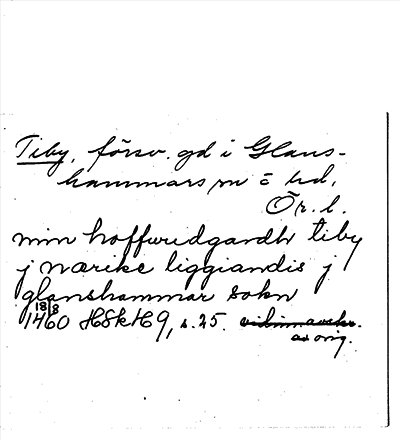 Tiby, försv. gd i Glans-
hammars sn o hd,
Ör. l.
min hoffwudgardh tiby
j nærike liggiandis j
glanshammar sokn
18/8
1460 HSkH 9, s. 25. vidim. avskr.
av orig.